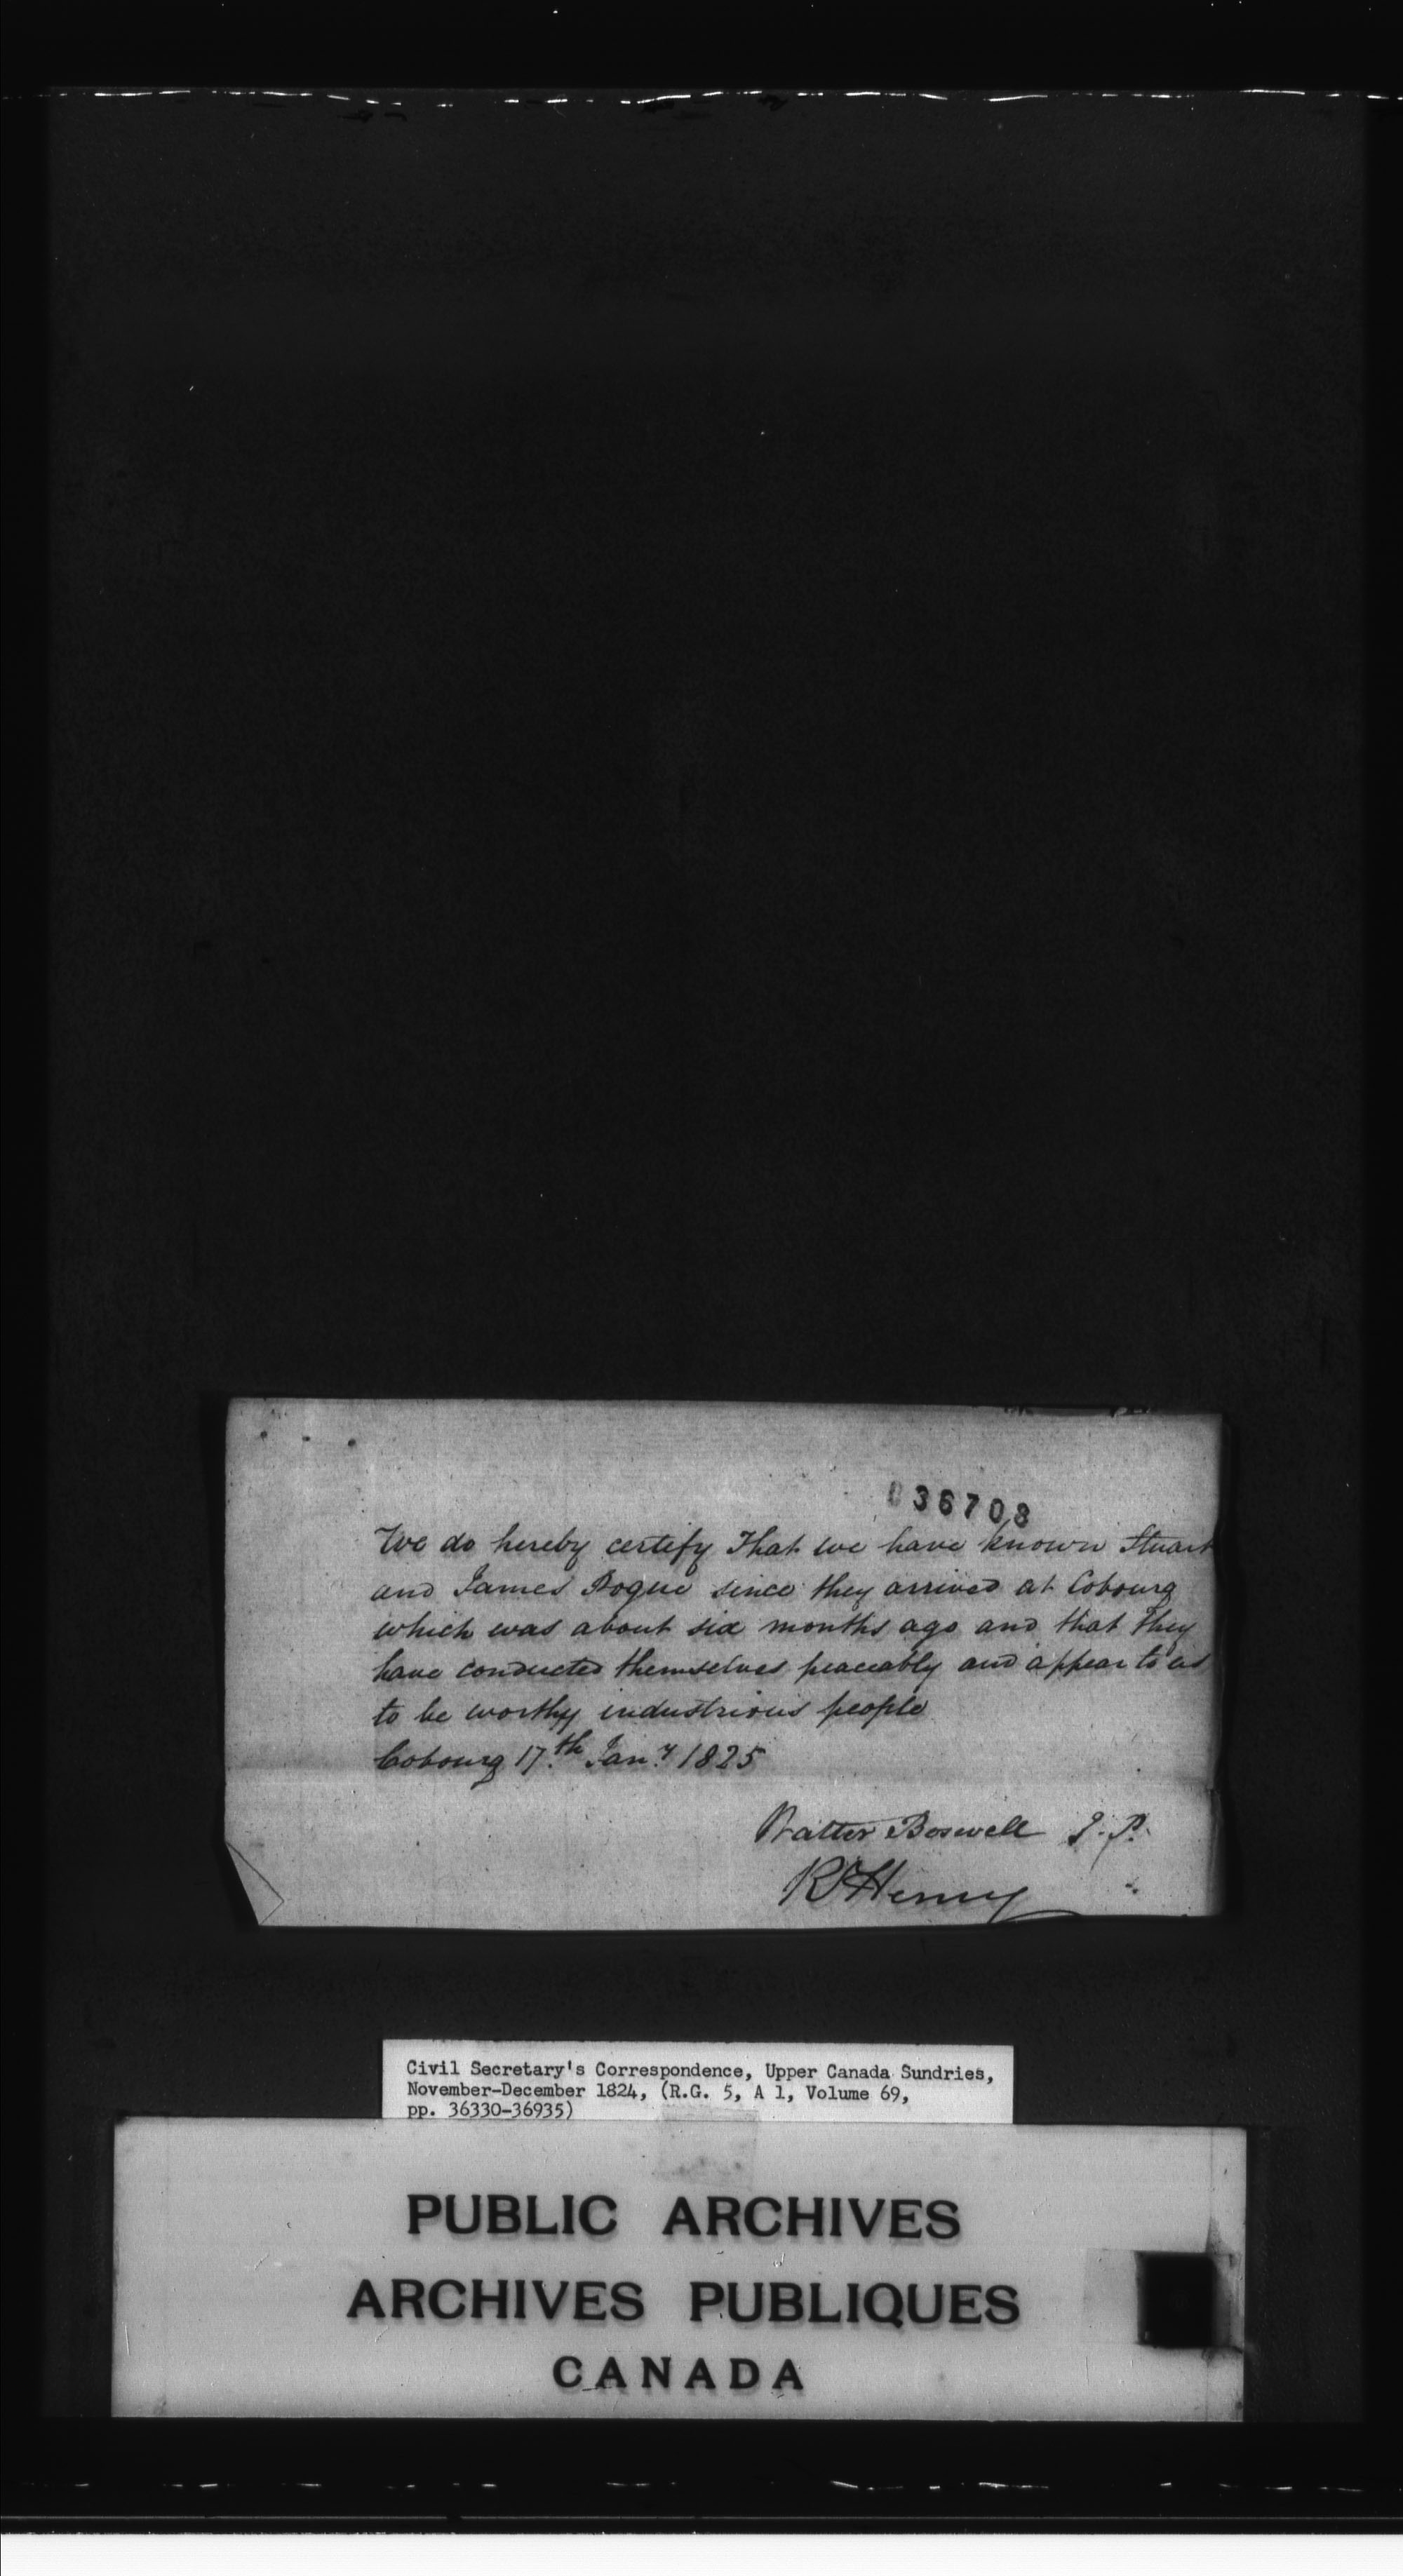 036708
We do hereby certify That we have known Stuart
and James Pogue since they arrived at Cobourg
which was about six months ago and that they
have conducted themselves peaceably and appear to us
to be worthy industrious people
Cobourg 17.th Jan.y 1825
Walter Boswell J. P.
R Henry
Civil Secretary's Correspondence, Upper Canada Sundries,
November-December 1824, (R.G. 5, A 1, Volume 69,
pp. 36330-36935)
PUBLIC ARCHIVES
ARCHIVES PUBLIQUES
CANADA